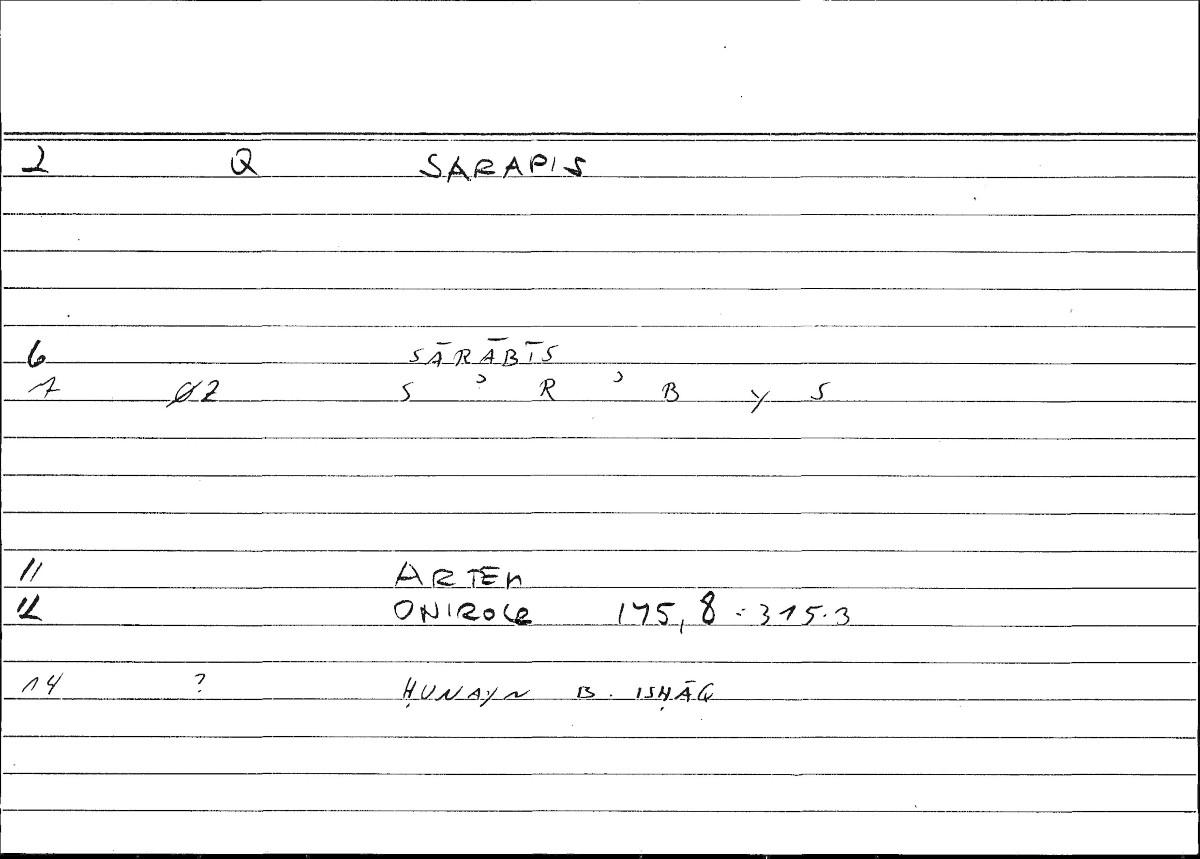 2 Q SARAPIS
6 SĀRĀBĪS
7 Ø2 S ʾ R ʾ B Y S
11 ARTEM
12 ONIROCR 175,8 - 315.3
14 ? ḤUNAYN B. ISḤĀQ